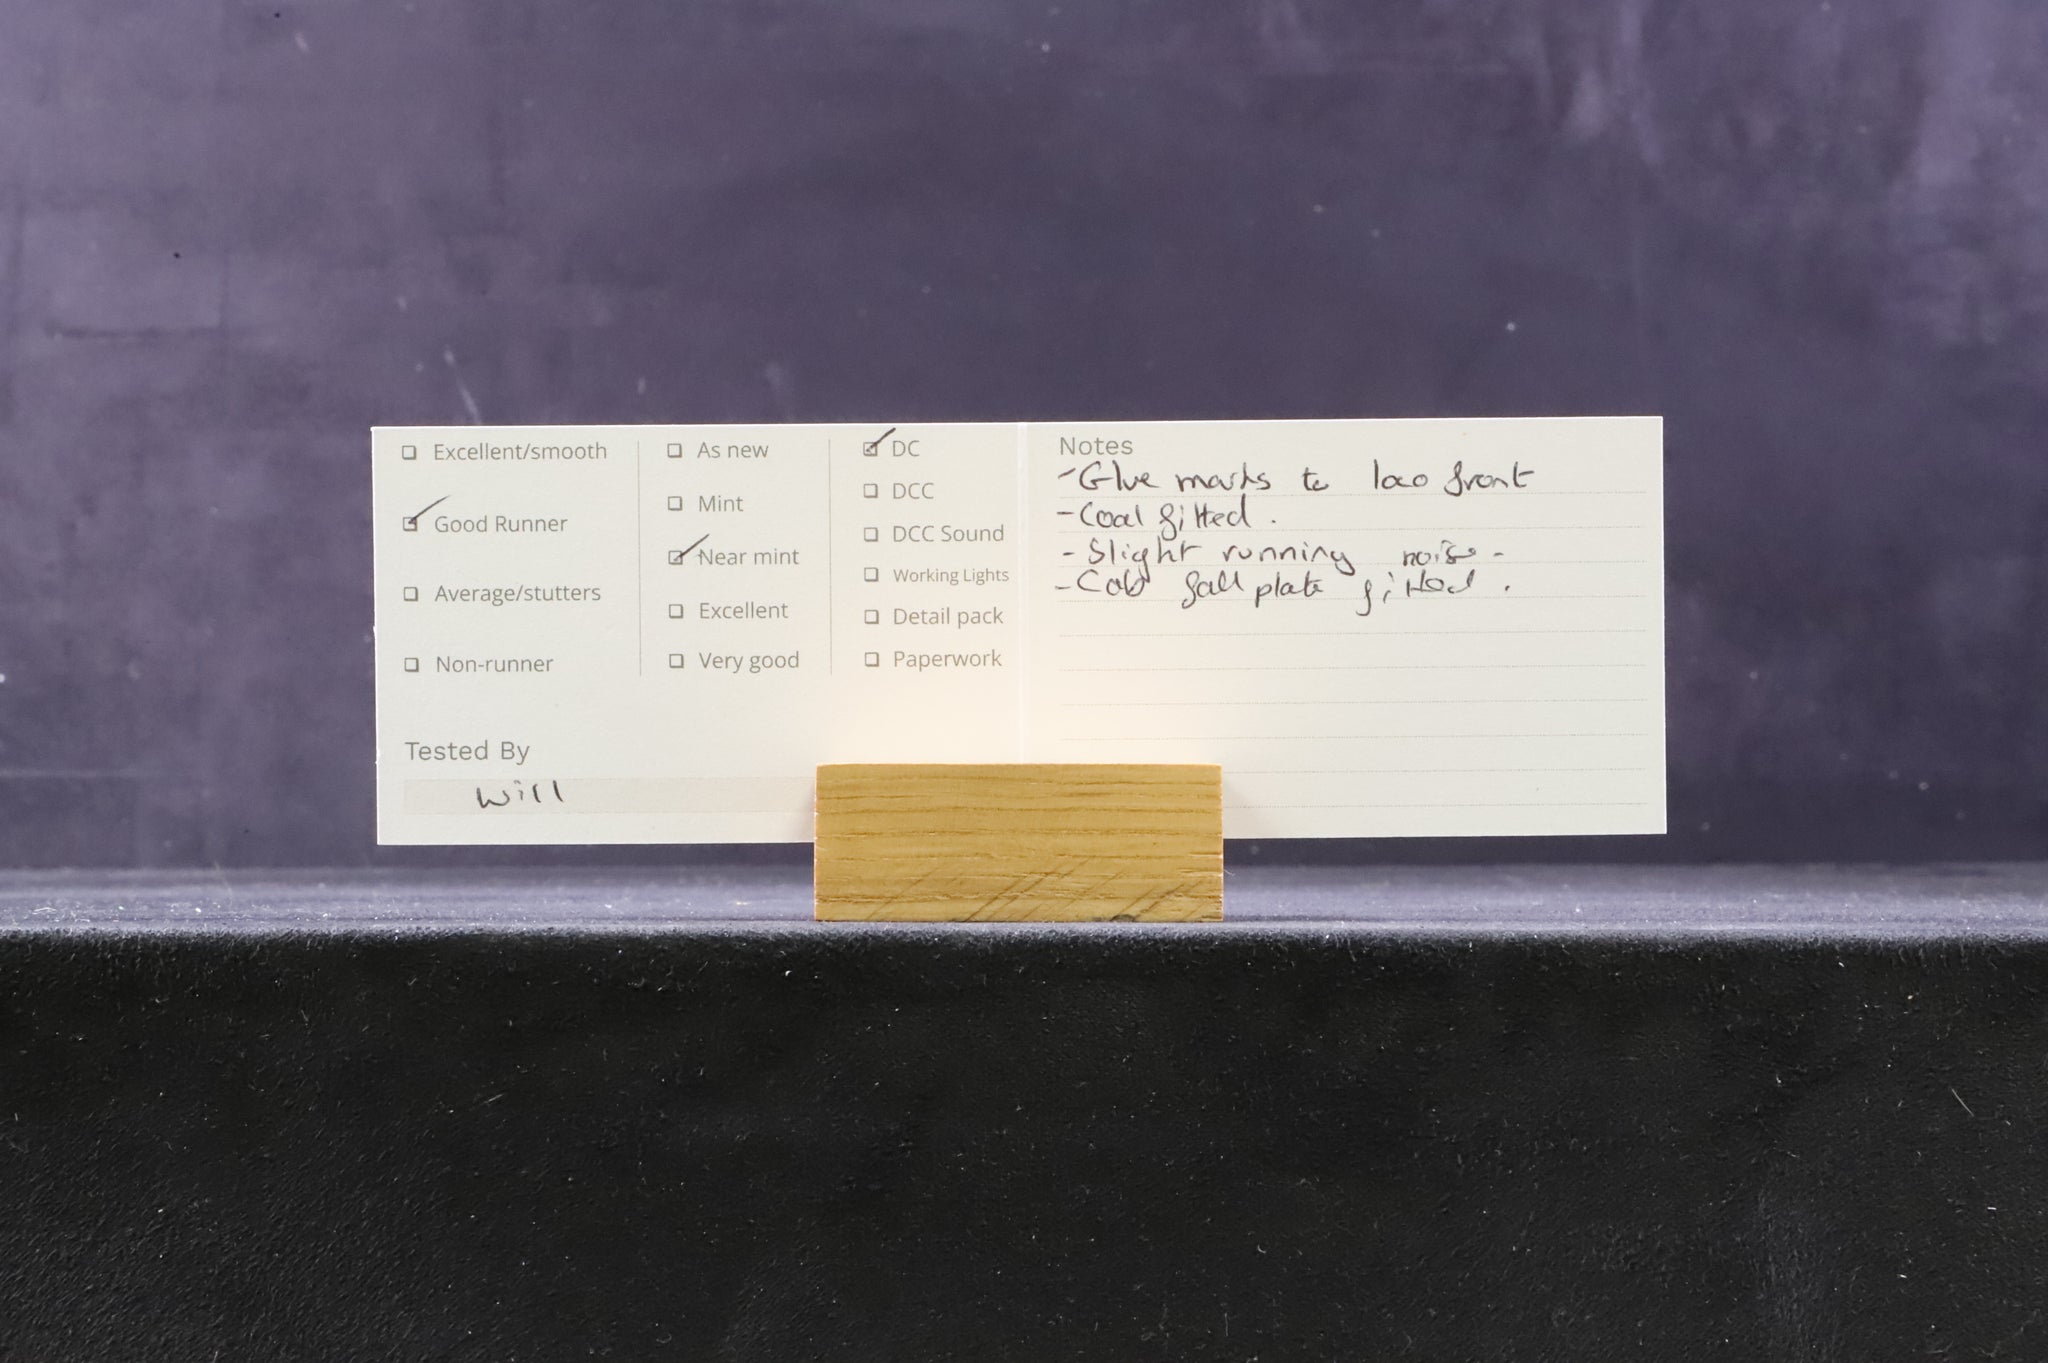 Excellent/smooth
Good Runner
Average/stutters
Non-runner
As new
Mint
Near mint
Excellent
Very good
DC
DCC
DCC Sound
Working Lights
Detail pack
Paperwork
Tested By
Will
Notes
- Glue marks to loco front
- Coal fitted.
- Slight running noise -
- Cab fall plate fitted.